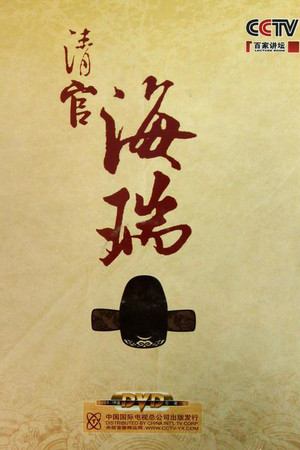 CCTV
百家讲坛
LECTURE ROOM
清官
海瑞
DVD
中国国际电视总公司出版发行
DISTRIBUTED BY CHINA INT'L TV CORP
央视音像网址网.WWW.CCTV-YX.COM